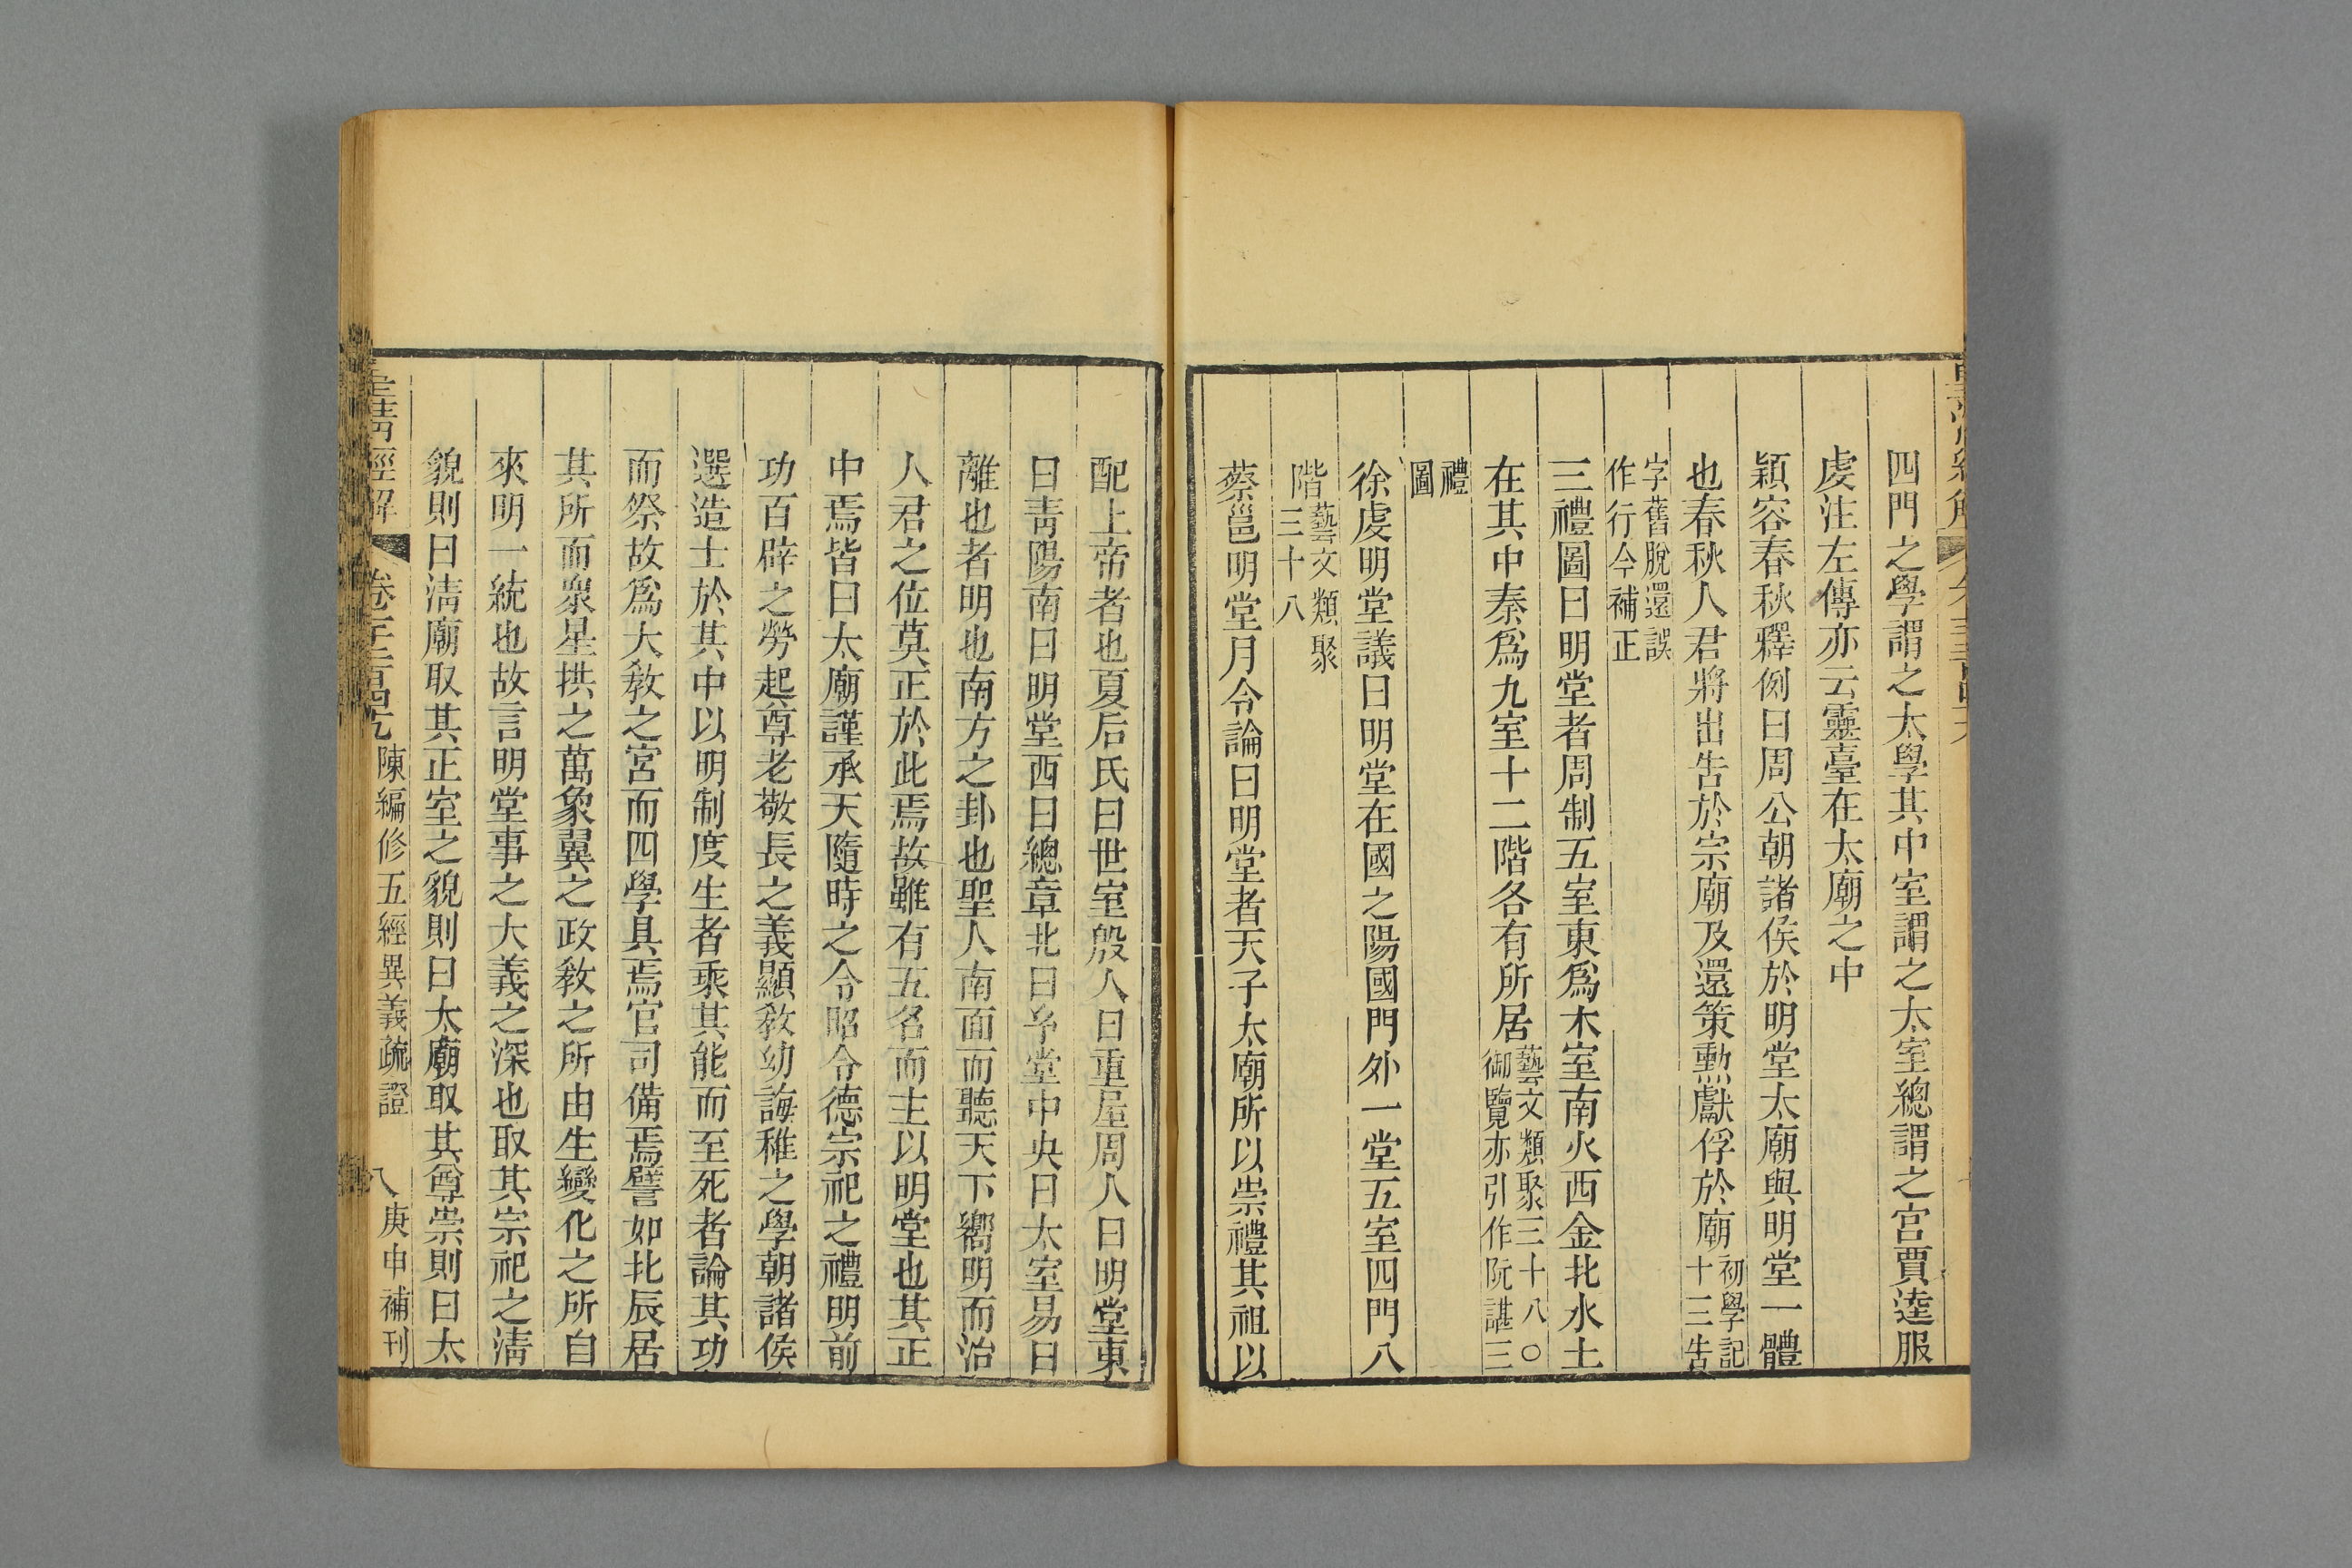 四門之學謂之太學其中室謂之太室總謂之宫賈逵服
虔注左傳亦云靈臺在太廟之中
頴容春秋釋例曰周公朝諸侯於明堂太廟與明堂一體
也春秋人君將出告於宗廟及還策勲獻俘於廟初學記十三告
字舊脫還誤作行今補正
三禮圖曰明堂者周制五室東爲木室南火西金北水土
在其中秦爲九室十二階各有所居藝文類聚三十八〇御覽亦引作阮諶三
禮圖
徐虔明堂議曰明堂在國之陽國門外一堂五室四門八
階藝文類聚三十八
蔡邕明堂月令論曰明堂者天子太廟所以崇禮其祖以
配上帝者也夏后氏曰世室殷人曰重屋周人曰明堂東
曰靑陽南曰明堂西曰總章北曰予堂中央曰太室易曰
離也者明也南方之卦也聖人南面而聽天下嚮明而治
人君之位莫正於此焉故雖有五名而主以明堂也其正
中焉皆曰太廟謹承天隨時之令昭令德宗祀之禮明前
功百辟之勞起尊老敬長之義顯敎幼誨稚之學朝諸侯
選造士於其中以明制度生者乘其能而至死者論其功
而祭故爲大敎之宮而四學具焉官司備焉譬如北辰居
其所而衆星拱之萬象翼之政敎之所由生變化之所自
來明一統也故言明堂事之大義之深也取其宗祀之淸
貌則曰淸廟取其正室之貌則曰太廟取其尊崇則曰太
皇淸經解 卷千二百四九 陳編修五經異義疏證 八 庚申補刊